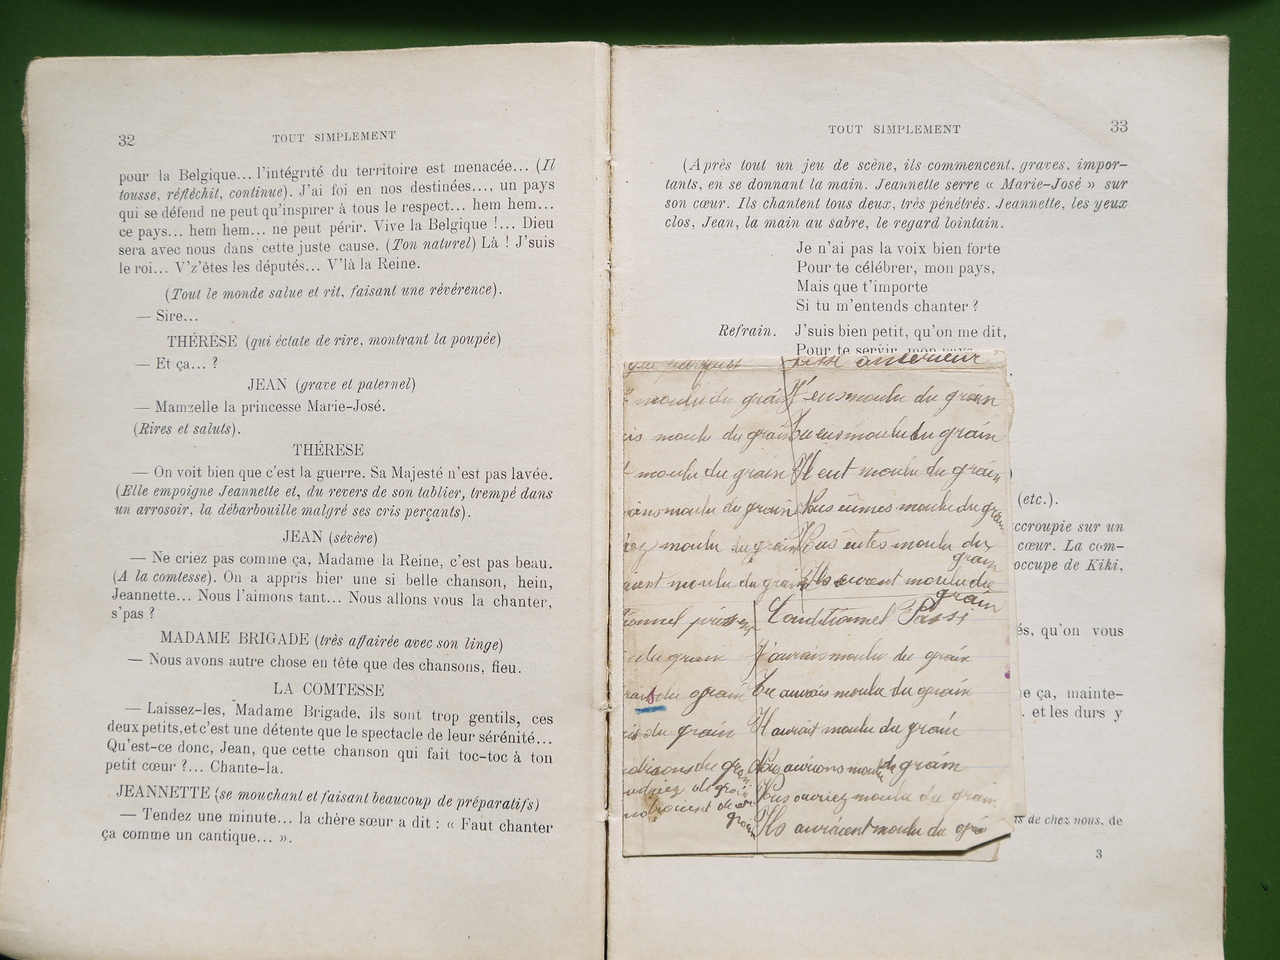 32
TOUT SIMPLEMENT
pour la Belgique... l'intégrité du territoire est menacée... (Il
tousse, réfléchit, continue). J'ai foi en nos destinées..., un pays
qui se défend ne peut qu'inspirer à tous le respect... hem hem...
ce pays... hem hem... ne peut périr. Vive la Belgique !... Dieu
sera avec nous dans cette juste cause. (Ton naturel) Là ! J'suis
le roi... V'z'êtes les députés... V'là la Reine.
(Tout le monde salue et rit, faisant une révérence).
— Sire...
THÉRÈSE (qui éclate de rire, montrant la poupée)
— Et ça... ?
JEAN (grave et paternel)
— Mamzelle la princesse Marie-José.
(Rires et saluts).
THÉRÈSE
— On voit bien que c'est la guerre. Sa Majesté n'est pas lavée.
(Elle empoigne Jeannette et, du revers de son tablier, trempé dans
un arrosoir, la débarbouille malgré ses cris perçants).
JEAN (sévère)
— Ne criez pas comme ça, Madame la Reine, c'est pas beau.
(A la comtesse). On a appris hier une si belle chanson, hein,
Jeannette... Nous l'aimons tant... Nous allons vous la chanter,
s'pas ?
MADAME BRIGADE (très affairée avec son linge)
— Nous avons autre chose en tête que des chansons, fieu.
LA COMTESSE
— Laissez-les, Madame Brigade, ils sont trop gentils, ces
deux petits, et c'est une détente que le spectacle de leur sérénité...
Qu'est-ce donc, Jean, que cette chanson qui fait toc-toc à ton
petit cœur ?... Chante-la.
JEANNETTE (se mouchant et faisant beaucoup de préparatifs)
— Tendez une minute... la chère sœur a dit : « Faut chanter
ça comme un cantique... ».
TOUT SIMPLEMENT
33
(Après tout un jeu de scène, ils commencent, graves, impor-
tants, en se donnant la main. Jeannette serre « Marie-José » sur
son cœur. Ils chantent tous deux, très pénétrés. Jeannette, les yeux
clos, Jean, la main au sabre, le regard lointain.
Je n'ai pas la voix bien forte
Pour te célébrer, mon pays,
Mais que t'importe
Si tu m'entends chanter ?
Refrain. J'suis bien petit, qu'on me dit,
Pour te servir, mon pays
antérieur
moulu du grain J'eus moulu du grain
moulu du grain Tu eus moulu du grain
moulu du grain Il eut moulu du grain
moulu du grain Nous eûmes moulu du grain
moulu du grain Vous eûtes moulu du
grain
moulu du grain Ils eurent moulu du
grain
Conditionnel Passé
du grain J'aurais moulu du grain
du grain Tu aurais moulu du grain
du grain Il aurait moulu du grain
du grain Nous aurions moulu du grain
du grain Vous auriez moulu du grain
grain Ils auraient moulu du grain
(etc.).
accroupie sur un
cœur. La com-
occupe de Kiki,
és, qu'on vous
ne ça, mainte-
. et les durs y
de chez nous, de
3